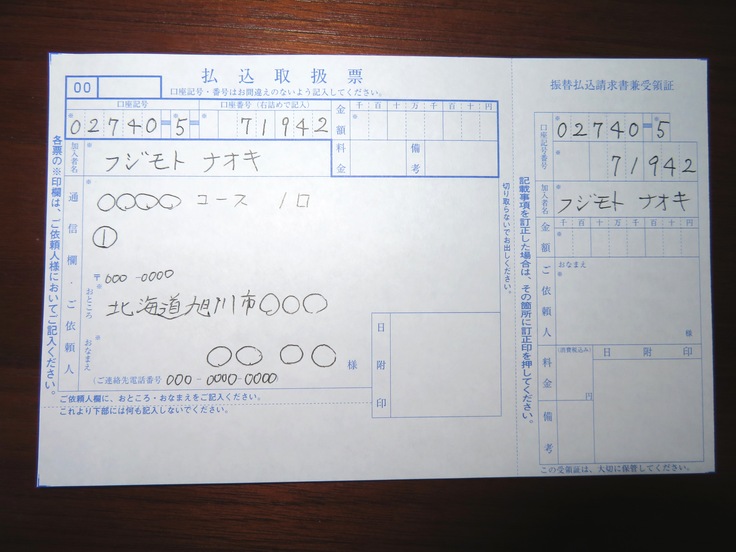 払込取扱票
00
口座記号・番号はお間違えのないよう記入してください。
口座記号
口座番号（右詰めで記入）
金額
千 百 十 万 千 百 十 円
02740-5-
71942
加入者名
フジモト ナオキ
料金
備考
通信欄・ご依頼人
○○○○コース 1口
①
〒000-0000
おところ
北海道旭川市○○○
おなまえ
○○ ○○ 様
(ご連絡先電話番号 000-0000-0000
日附印
ご依頼人欄に、おところ・おなまえをご記入ください。
これより下部には何も記入しないでください。
各票の※印欄は、ご依頼人様においてご記入ください。
切り取らないでお出しください。
記載事項を訂正した場合は、その箇所に訂正印を押してください。
振替払込請求書兼受領証
口座記号番号
02740-5
71942
加入者名
フジモト ナオキ
金額
千 百 十 万 千 百 十 円
ご依頼人
おなまえ
様
料金
(消費税込み)
円
日附印
備考
この受領証は、大切に保管してください。